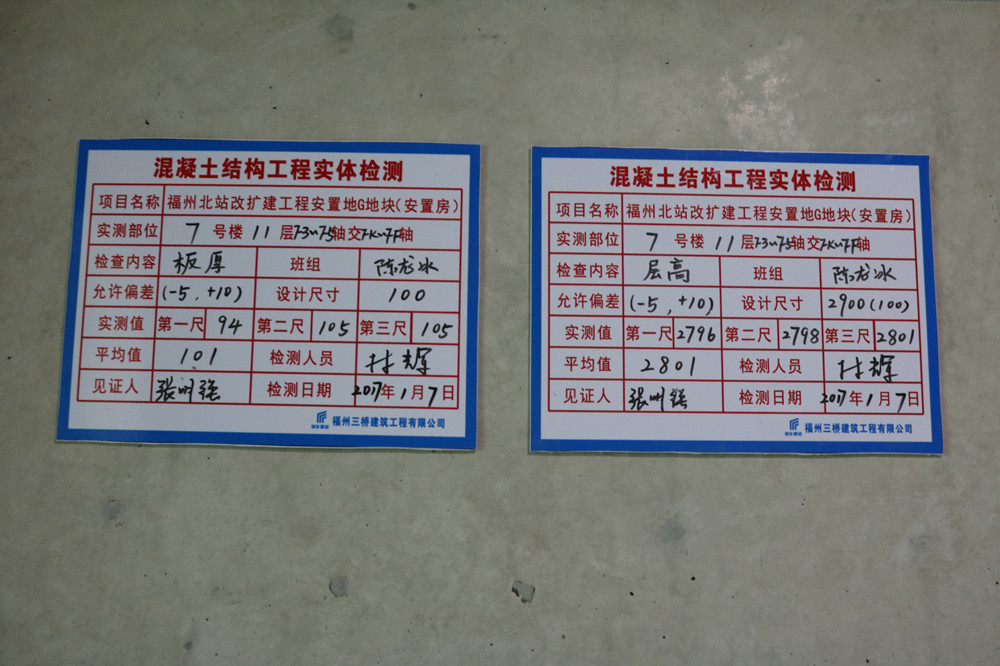 混凝土结构工程实体检测
项目名称 福州北站改扩建工程安置地G地块(安置房)
实测部位 7 号楼 11 层7-3~7-5轴交7-K~7-F轴
检查内容 板厚 班组 陈龙冰
允许偏差 (-5,+10) 设计尺寸 100
实测值 第一尺 94 第二尺 105 第三尺 105
平均值 101 检测人员 辉
见证人 张 强 检测日期 2017年1月7日
福州三桥建筑工程有限公司
混凝土结构工程实体检测
项目名称 福州北站改扩建工程安置地G地块(安置房)
实测部位 7 号楼 11 层7-3~7-5轴交7-K~7-F轴
检查内容 层高 班组 陈龙冰
允许偏差 (-5,+10) 设计尺寸 2900(100)
实测值 第一尺 2796 第二尺 2798 第三尺 2801
平均值 2801 检测人员 辉
见证人 张 强 检测日期 2017年1月7日
福州三桥建筑工程有限公司